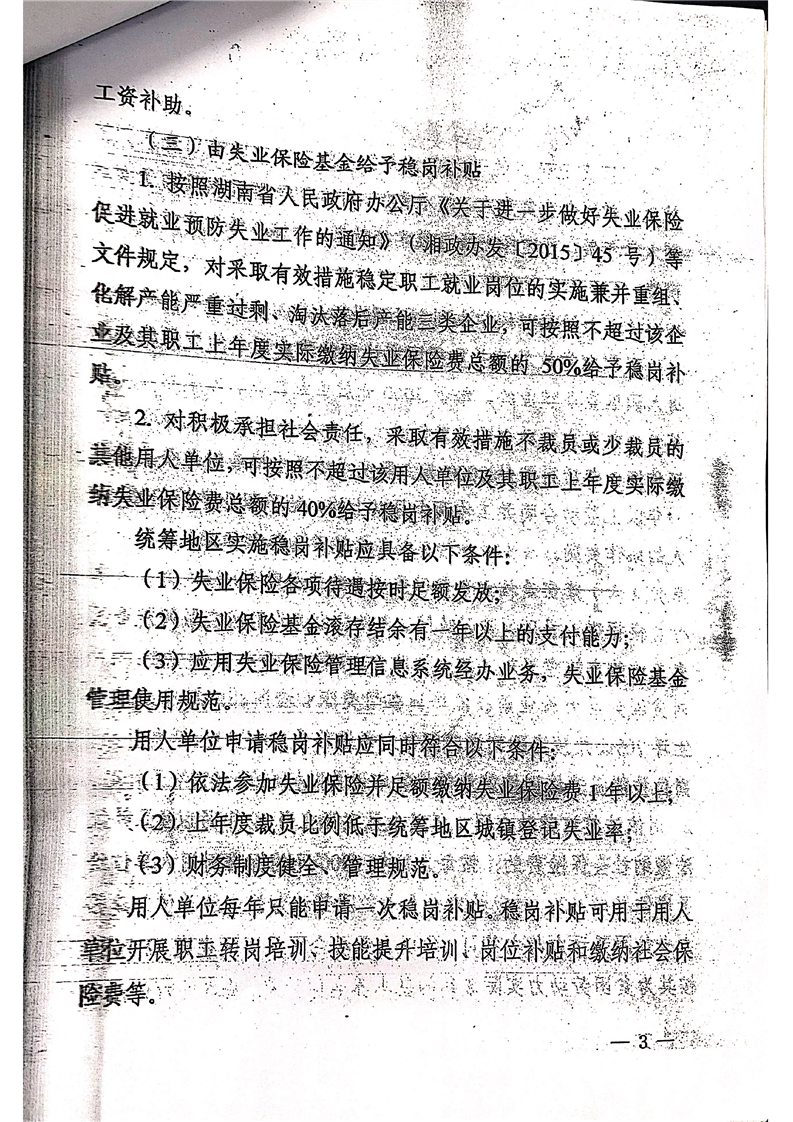 工资补助。
（三）由失业保险基金给予稳岗补贴
1. 按照湖南省人民政府办公厅《关于进一步做好失业保险
促进就业预防失业工作的通知》（湘政办发〔2015〕45 号）等
文件规定，对采取有效措施稳定职工就业岗位的实施兼并重组、
化解产能严重过剩、淘汰落后产能三类企业，可按照不超过该企
业及其职工上年度实际缴纳失业保险费总额的 50%给予稳岗补
贴。
2. 对积极承担社会责任，采取有效措施不裁员或少裁员的
其他用人单位，可按照不超过该用人单位及其职工上年度实际缴
纳失业保险费总额的 40%给予稳岗补贴。
统筹地区实施稳岗补贴应具备以下条件：
（1）失业保险各项待遇按时足额发放；
（2）失业保险基金滚存结余有一年以上的支付能力；
（3）应用失业保险管理信息系统经办业务，失业保险基金
管理使用规范。
用人单位申请稳岗补贴应同时符合以下条件：
（1）依法参加失业保险并足额缴纳失业保险费 1 年以上；
（2）上年度裁员比例低于统筹地区城镇登记失业率；
（3）财务制度健全、管理规范。
用人单位每年只能申请一次稳岗补贴。稳岗补贴可用于用人
单位开展职工转岗培训、技能提升培训、岗位补贴和缴纳社会保
险费等。
— 3 —